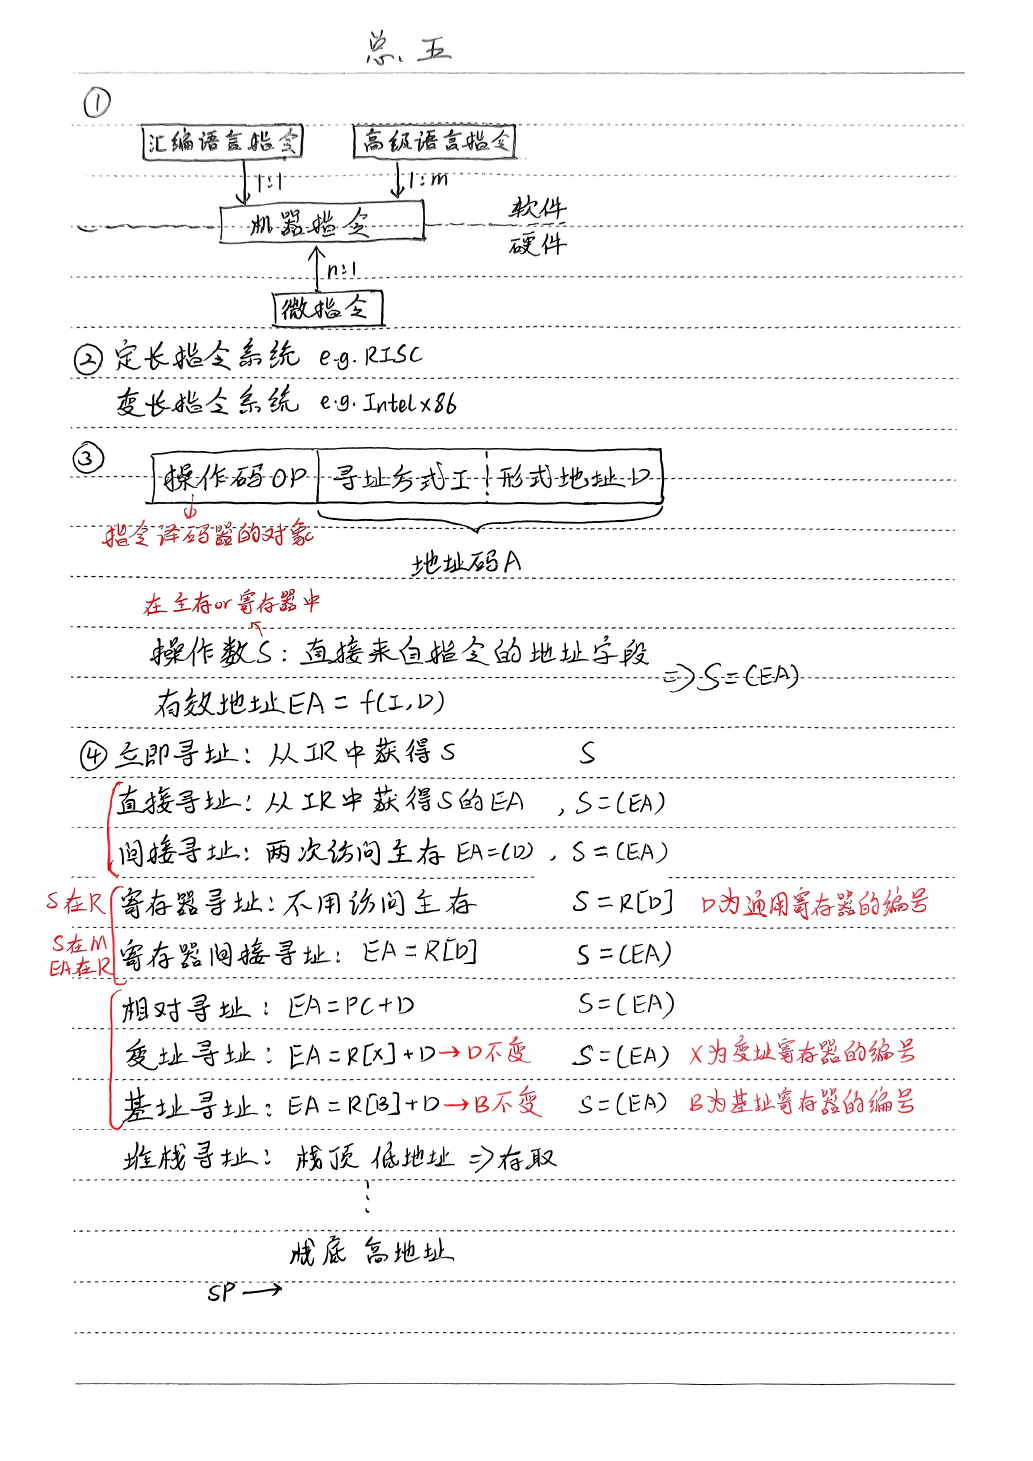 总、五
①
汇编语言指令 高级语言指令
1:1 1:m
机器指令 软件
硬件
n:1
微指令
② 定长指令系统 e.g. RISC
变长指令系统 e.g. Intel x86
③
操作码OP 寻址方式I 形式地址D
指令译码器的对象
地址码A
在主存or寄存器中
操作数S: 直接来自指令的地址字段
⇒ S=(EA)
有效地址EA = f(I,D)
④ 立即寻址: 从IR中获得S S
直接寻址: 从IR中获得S的EA , S=(EA)
间接寻址: 两次访问主存 EA=(D) , S=(EA)
S在R 寄存器寻址: 不用访问主存 S=R[D] D为通用寄存器的编号
S在M
EA在R 寄存器间接寻址: EA=R[D] S=(EA)
相对寻址: EA=PC+D S=(EA)
变址寻址: EA=R[X]+D→D不变 S=(EA) X为变址寄存器的编号
基址寻址: EA=R[B]+D→B不变 S=(EA) B为基址寄存器的编号
堆栈寻址: 栈顶 低地址 ⇒存取
⋮
栈底 高地址
SP→